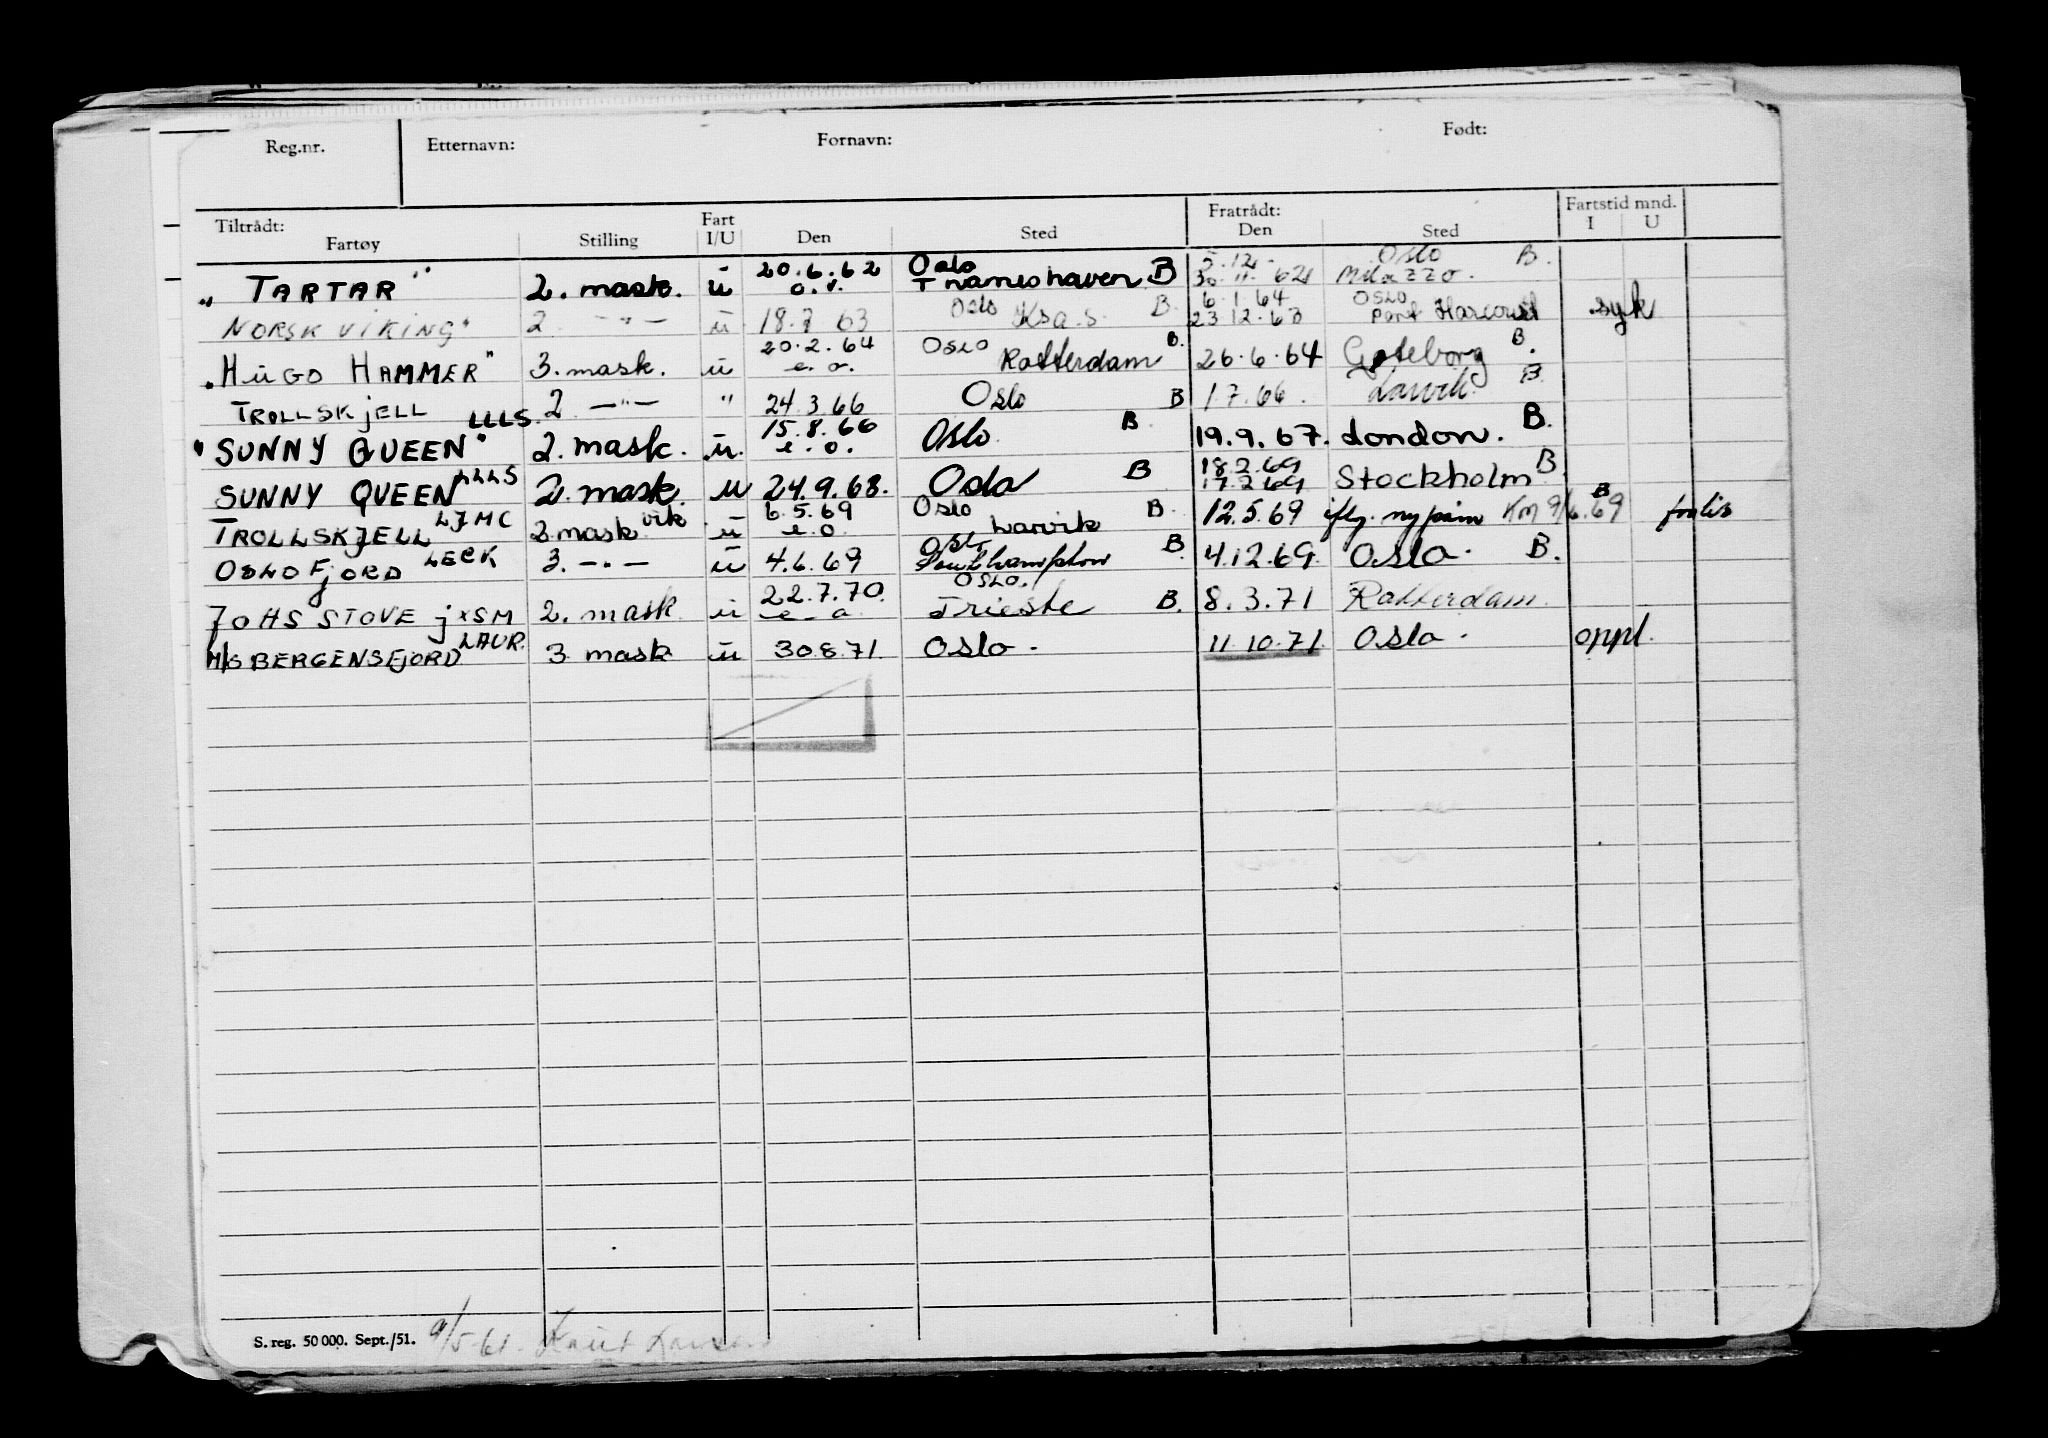 Reg.nr. Etternavn: Fornavn: Født:
Tiltrådt: Fart Fratrådt: Fartstid mnd.
Fartøy Stilling I/U Den Sted Den Sted I U
20.6.62 Oslo 5.12. Oslo B.
"TARTAR" 2. mask. u Thameshaven B 30.11.62 Milazzo.
Oslo B. 6.1.64 OSLO
NORSK VIKING" 2 -"- u 18.7 63 23.12.63 Port Harcourt syk
20.2.64 OSLO B. B.
"HUGO HAMMER" 3. mask. u e.o. Rotterdam 26.6.64 Gøteborg.
TROLLSKJELL 2 -"- " 24.3.66 Oslo B 1.7.66. Larvik. B.
LLLS 15.8.66 B. B.
"SUNNY QUEEN" 2. mask. u. e.o. Oslo. 19.9.67. London.
LLLS 18.2.69
SUNNY QUEEN 2. mask. u 24.9.68. Oslo B 17.2.69 Stockholm B.
LJMC vik 6.5.69 Oslo B. B
TROLLSKJELL 2 mask u e.o. Larvik 12.5.69 iflg. Km 9/6.69 forlis
LECK Oslo B.
OSLOFJORD 3. -"- u 4.6.69 Southampton 4.12.69. Oslo. B.
22.7.70. OSLO.
JOHS STOVE JXSM 2. mask u e.o. Trieste B. 8.3.71 Rotterdam.
LAUR.
M/S BERGENSFJORD 3 mask u 30.8.71. Oslo. 11.10.71. Oslo. oppl.
S. reg. 50 000. Sept./51. 9/5-61. Knut Larsen